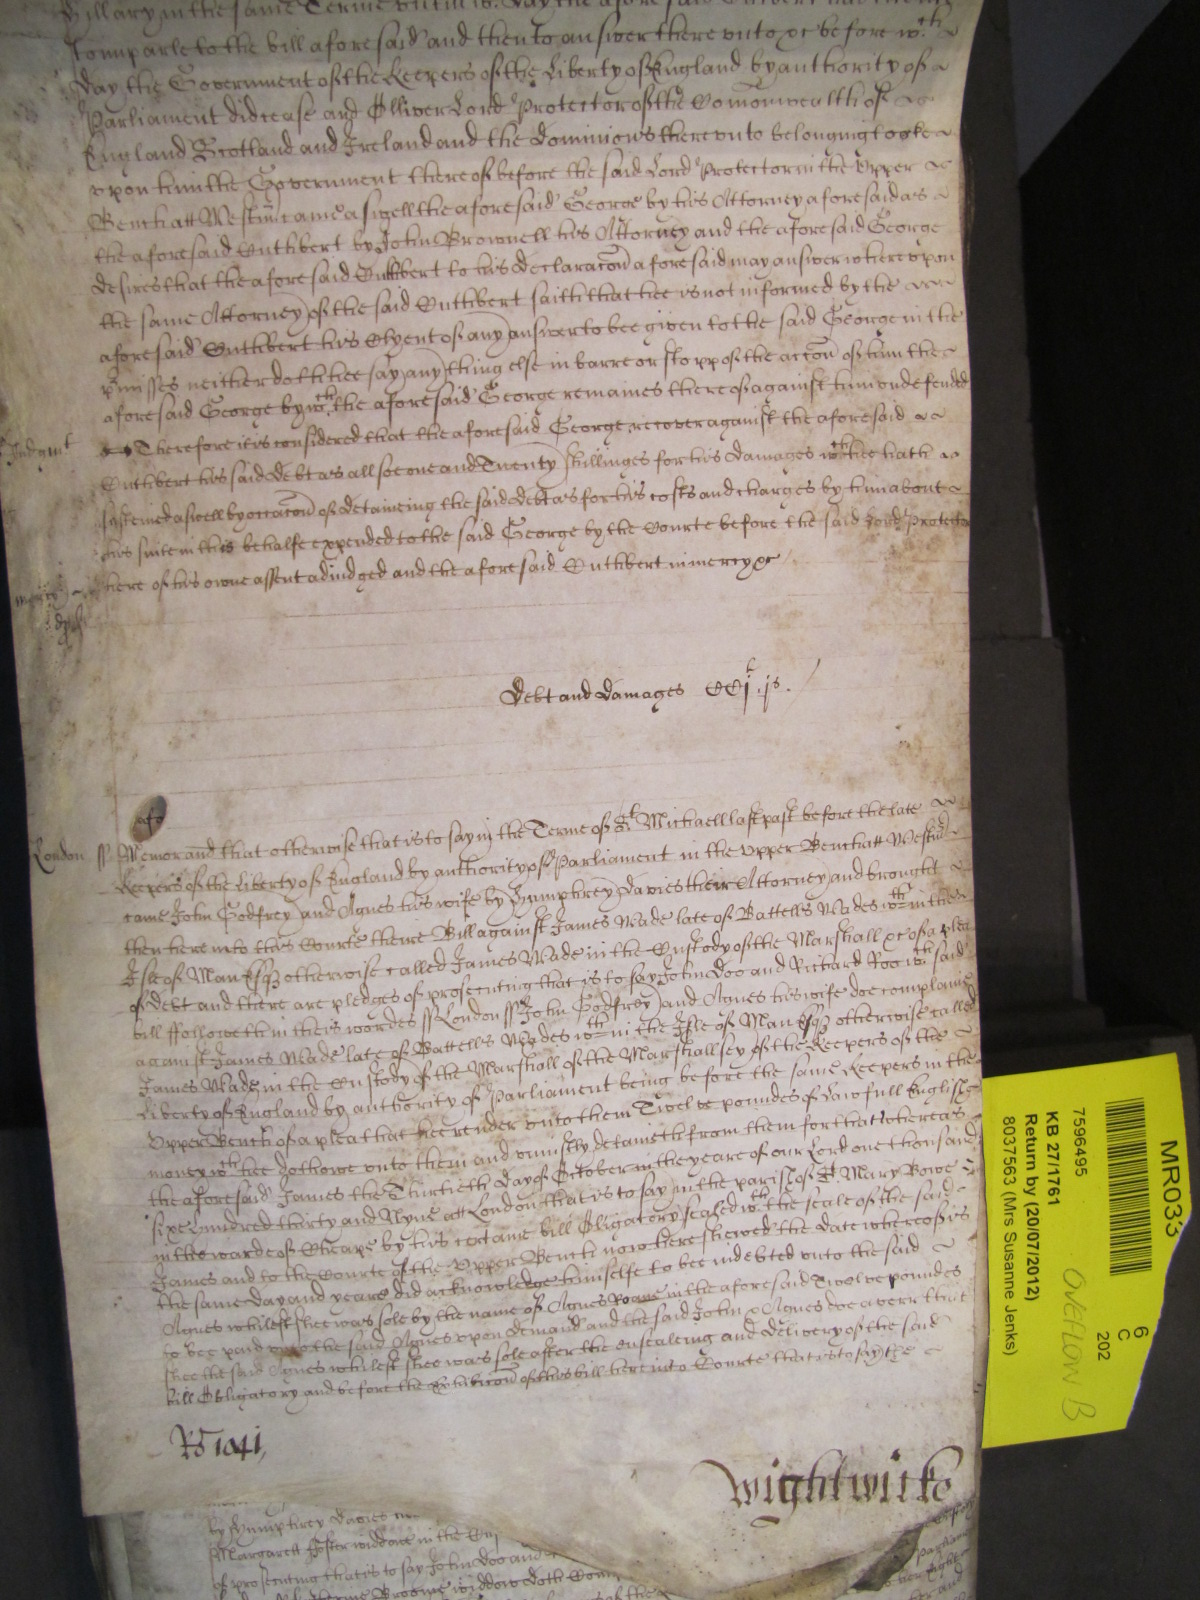 Hillary in the same Terme untill wch day the aforesaid Cuthbert had
to imparle to the bill aforesaid and then to answer thereunto &c before wch
day the Government of the Keepers of the Liberty of England by authority of
Parliament did cease and Olliver Lord Protector of the Comonwealth of
England Scotland and Ireland and the dominions thereunto belonging tooke
upon him the Government thereof before the said Lord Protector in the Upper
Bench att Westmr came aswell the aforesaid George by his Attorney aforesaid as
the aforesaid Cuthbert by John Brownell his Attorney and the aforesaid George
desires that the aforesaid Cuthbert to his declaracon aforesaid may answer whereupon
the same Attorney of the said Cuthbert saith that hee is not informed by the
aforesaid Cuthbert his Clyent of any answer to bee given to the said George in the
pmisses neither doth hee say any thing else in barre or stopp of the accon of him the
aforesaid George by wch the aforesaid George remaines thereof against him undefended
Judgmt Therefore it is considered that the aforesaid George recover against the aforesaid
Cuthbert his said debt as allsoe one and Twenty shillinges for his damages wch hee hath
susteined aswell by occacon of deteineing the said debt as for his costs and charges by him about
his suite in this behalfe expended to the said George by the Courte before the said Lord Protector
here of his owne assent adiudged and the aforesaid Cuthbert in mercy &c
mercy
Debt and damages CCjl js.
London ss Memorand that otherwise that is to say in the Terme of St Michaell last past before the late
Keepers of the Liberty of England by authority of Parliament in the Upper Bench att Westmr
came John Godfrey and Agnes his wife by Humphrey Davies their Attorney and brought
then here into this Courte theire Bill against James Wade late of Battells Wades wth in the
Isle of Man Esqr otherwise called James Wade in the Custody of the Marshall &c of a plea
of debt and there are pledges of prosecuting that is to say John Doo and Richard Roo wch said
bill ffolloweth in theis wordes ss London ss John Godfrey and Agnes his wife doe complaine
against James Wade late of Battells Wades wth in the Isle of Man Esqr otherwise called
James Wade in the Custody of the Marshall of the Marshallsey of the Keepers of the
Liberty of England by authority of Parliament being before the same Keepers in the
Upper Bench of a plea that hee render unto them Twelve poundes of Lawfull English
money wch hee doth owe unto them and uniustly detaineth from them for that whereas
the aforesaid James the Thirtieth day of October in the yeare of our Lord one thousand
sixe hundred thirty and Nyne att London that is to say in the parish of St Mary Bowe
in the warde of Cheape by his certaine bill Obligatory sealed wth the seale of the said
James and to the Courte of the Upper Bench now here shewed the date whereof is
the same day and yeare did acknowledge himselfe to bee indebted unto the said
Agnes whilest shee was sole by the name of Agnes in the aforesaid Twelve poundes
to bee paid unto the said Agnes upon demaund and the said John & Agnes doe averr that
shee the said Agnes whilest shee was sole after the ensealeing and delivery of the said
bill Obligatory and before the exhibicon of this bill here into Courte that is to say the
Ro 1041
Wightwicke
by Humphrey Davies
Margarett widdow in the
of prosecuting that is to say John Doo and
widdow doth
MR033
7596495
KB 27/1761
Return by (20/07/2012)
8037563 (Mrs Susanne Jenks)
6
C
202
OVERFLOW B